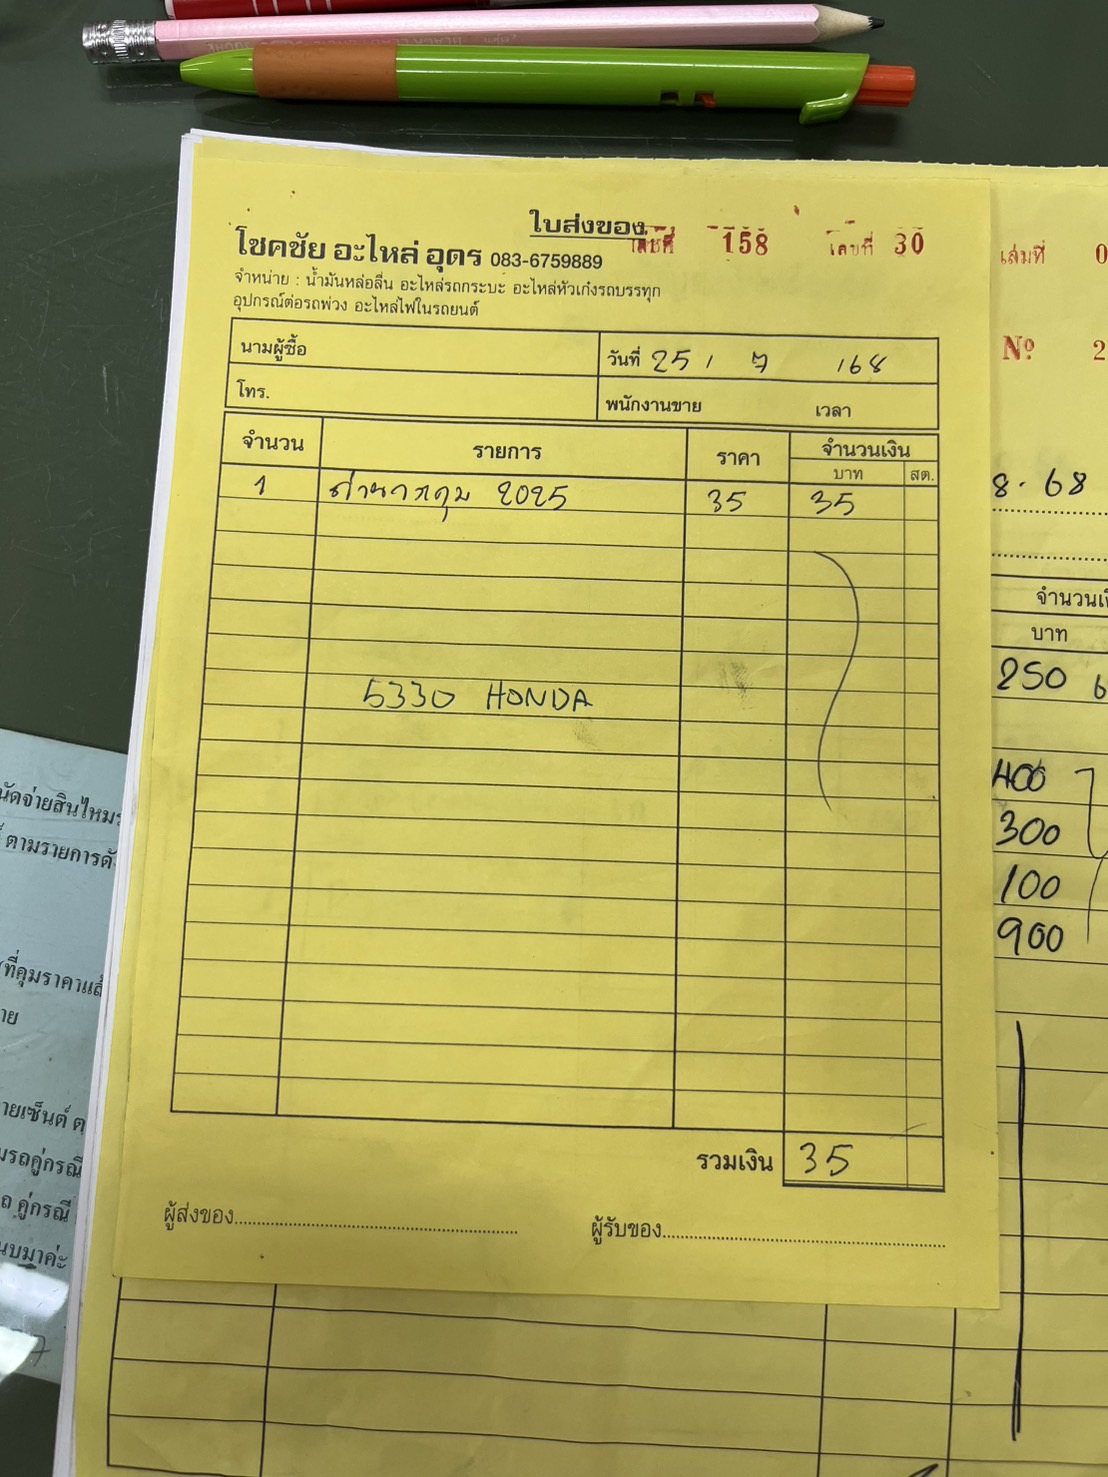 ใบส่งของ
เล่มที่ 158 เลขที่ 30
โชคชัย อะไหล่ อุดร 083-6759889
จำหน่าย : น้ำมันหล่อลื่น อะไหล่รถกระบะ อะไหล่หัวเก๋งรถบรรทุก
อุปกรณ์ต่อรถพ่วง อะไหล่ไฟในรถยนต์
นามผู้ซื้อ วันที่ 25 / 7 /68
โทร. พนักงานขาย เวลา
จำนวน รายการ ราคา จำนวนเงิน
บาท สต.
1 2025 35 35
5330 HONDA
รวมเงิน 35
ผู้ส่งของ ผู้รับของ
เล่มที่ 0
Nº 2
8. 68
บาท
250
400
300
100
900
นัดจ่ายสินไหม
ตามรายการ
ที่คุมราคาแล้
าย
ายเซ็นต์ ต
รถคู่กรณี
ถ คู่กรณี
นบมาค่ะ